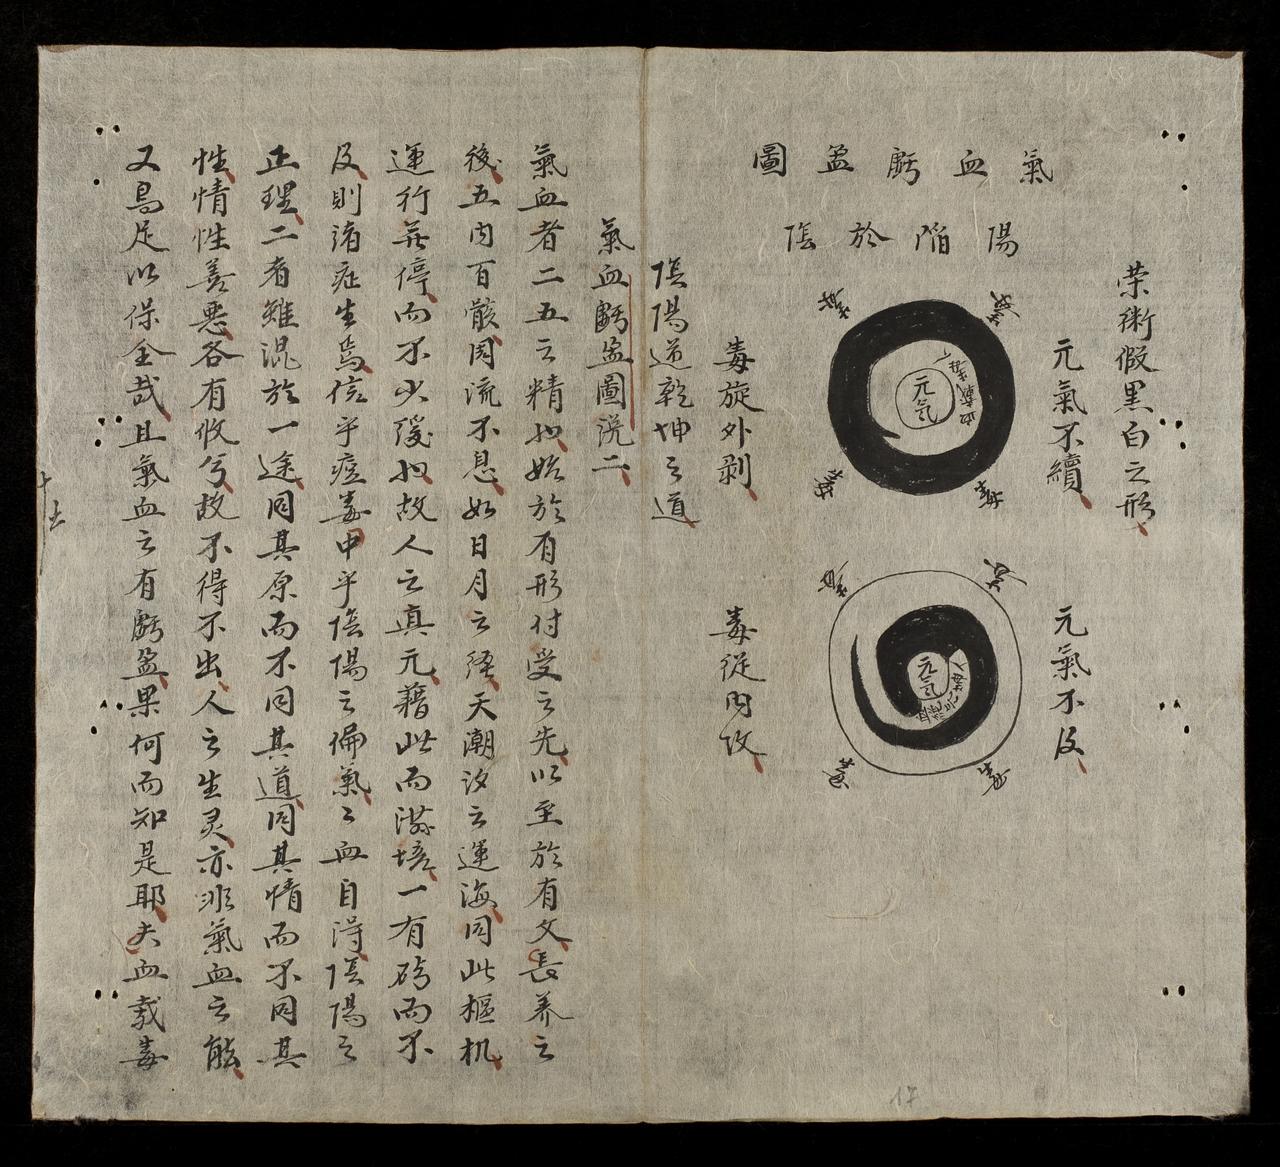 氣血虧盈圖
陽陷於陰
榮術假黑白之形
元氣不續
元氣不及
毒
毒
毒
毒
元氣
毒
毒
毒
毒
元氣
毒旋外剥
毒從内攻
陰陽道乾坤之道
氣血虧盈圖説二
氣血者二五之精也始於有形付受之先以至於有文長養之
後五内百骸周流不息如日月之經天潮汐之運海同此樞机
運行無停而不少緩也故人之真元藉此而滋培一有碍而不
及則諸症生焉信乎痘毒中乎陰陽之偏氣〻血自得陰陽之
正理二者雖混於一途同其原而不同其道同其情而不同其
性情性善惡各有攸兮故不得不出人之生灵亦非氣血之能
又烏足以保全哉且氣血之有虧盈果何而知是耶夫血載毒
17